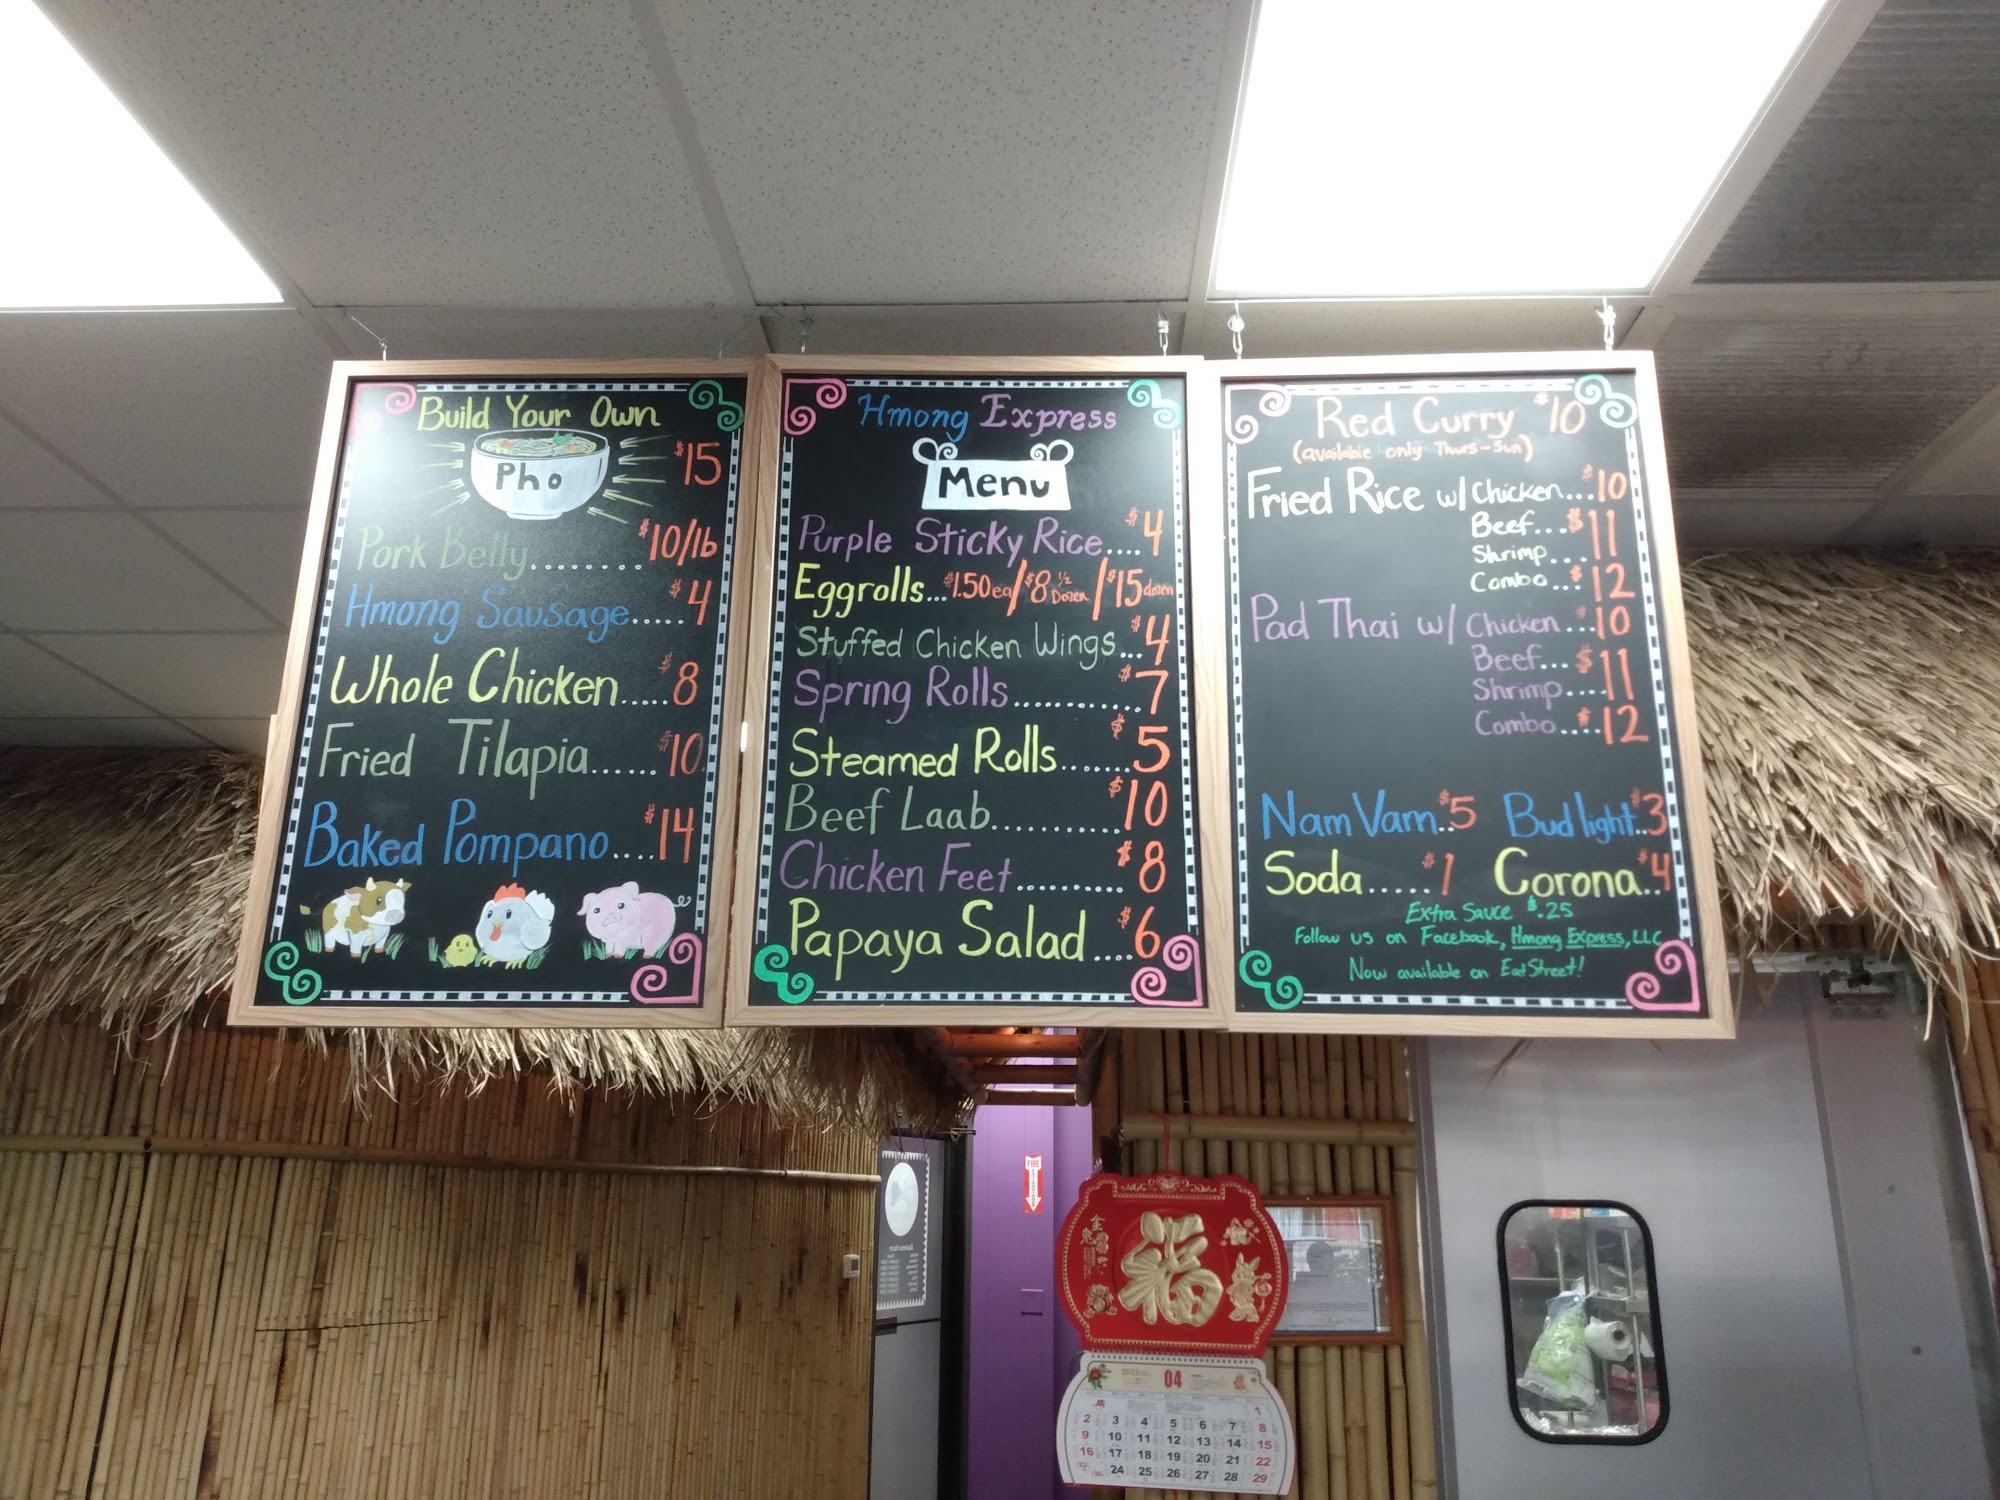 Build Your Own
Pho $15
Pork Belly......... $10/lb
Hmong Sausage..... $4
Whole Chicken..... $8
Fried Tilapia...... $10
Baked Pompano.... $14
Hmong Express
Menu
Purple Sticky Rice.... $4
Eggrolls... $1.50ea/$8 ½ Dozen/$15 dozen
Stuffed Chicken Wings... $4
Spring Rolls............ $7
Steamed Rolls....... $5
Beef Laab........... $10
Chicken Feet.......... $8
Papaya Salad .... $6
Red Curry $10
(available only Thurs-Sun)
Fried Rice w/ Chicken... $10
Beef... $11
Shrimp...
Combo... $12
Pad Thai w/ Chicken... $10
Beef... $11
Shrimp....11
Combo.... $12
Nam Vam.. $5 Bud light.. $3
Soda...... $1 Corona.. $4
Extra Sauce $.25
Follow us on Facebook, Hmong Express, LLC
Now available on EatStreet!
FIRE
福
2023 04
1
2 3 4 5 6 7 8
9 10 11 12 13 14 15
16 17 18 19 20 21 22
24 25 26 27 28 29